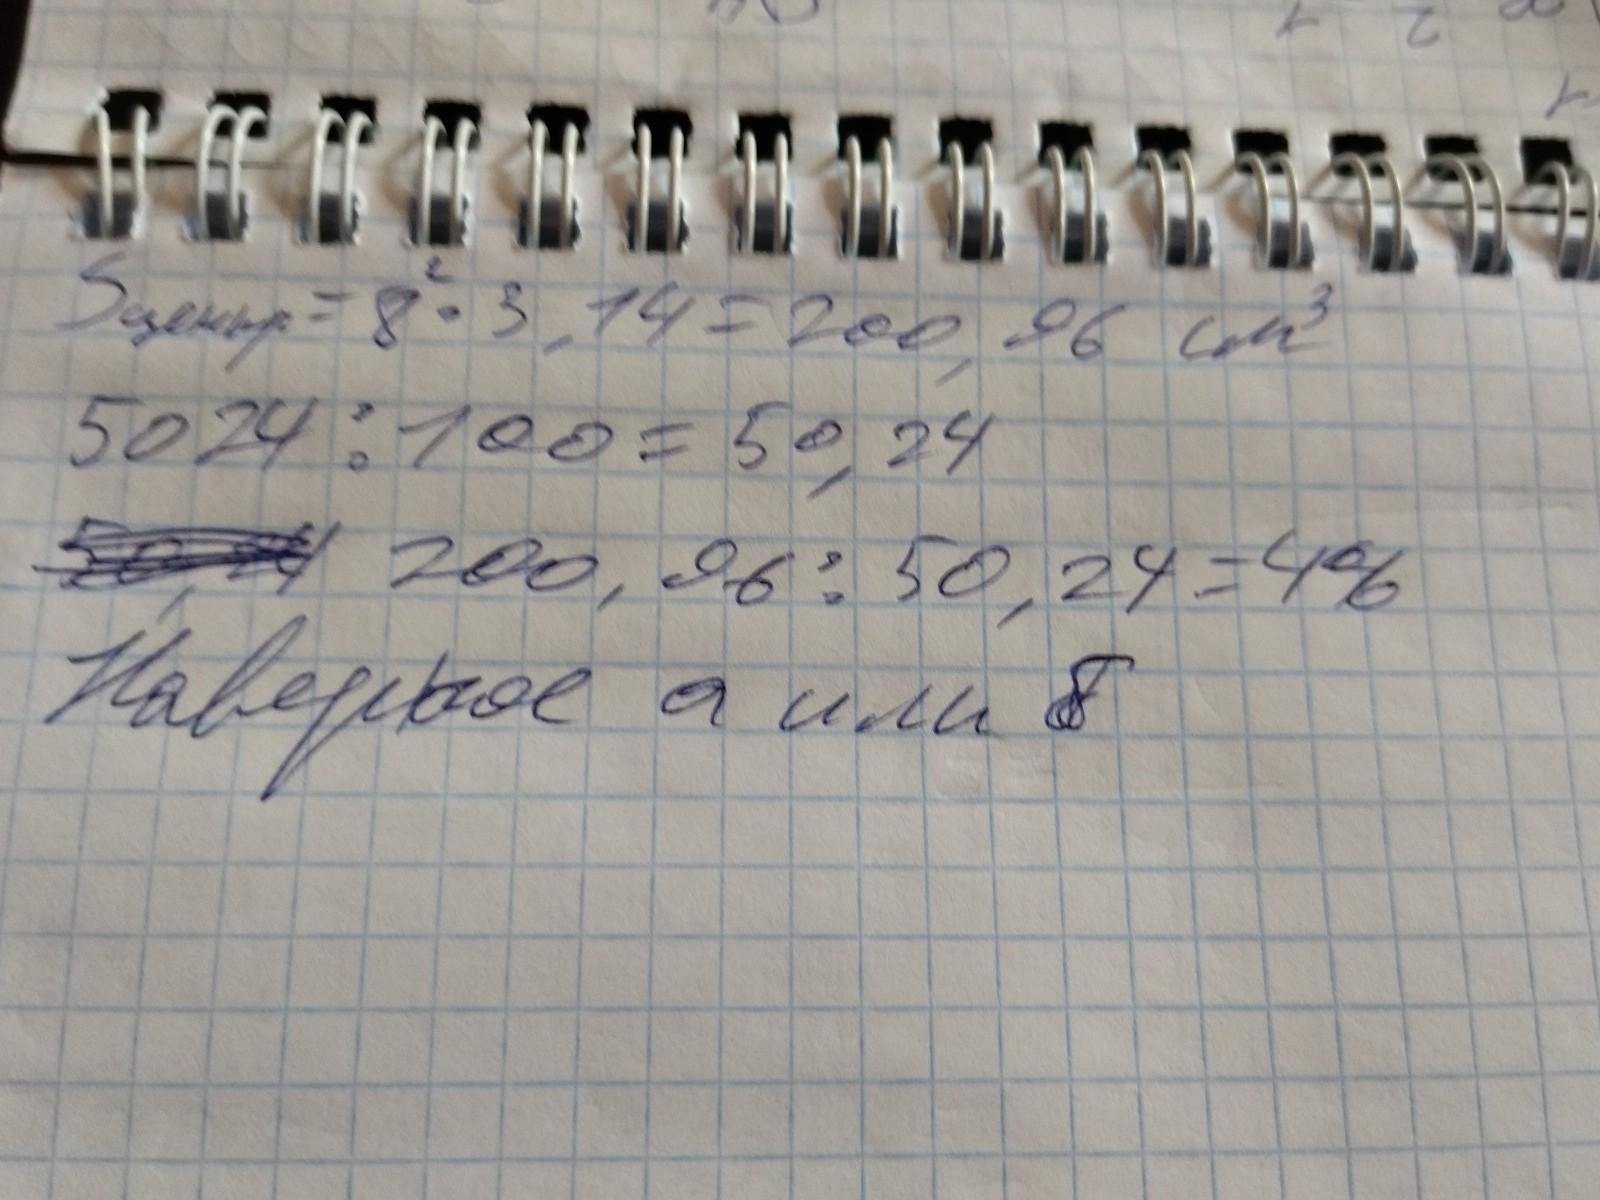 Sцентр = 8² · 3,14 = 200,96 см³
5024 : 100 = 50,24
200,96 : 50,24 = 4%
Наверное а или б